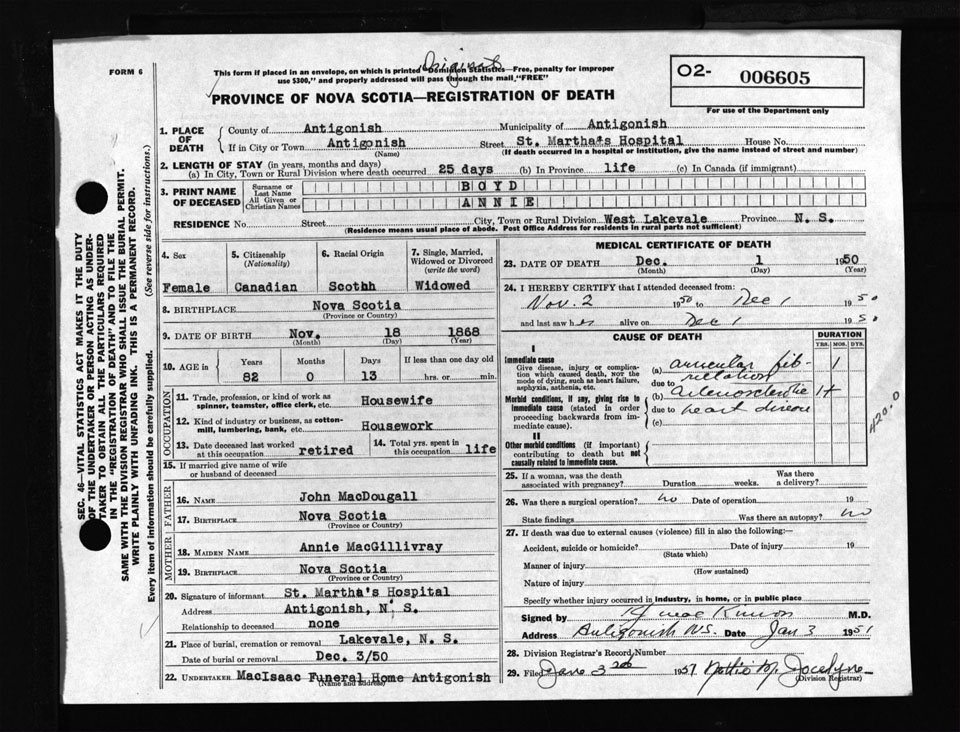 FORM 6
Original
This form if placed in an envelope, on which is printed "Dominion Statistics—Free, penalty for improper
use $300," and properly addressed will pass through the mail, "FREE"
O2- 006605
For use of the Department only
PROVINCE OF NOVA SCOTIA—REGISTRATION OF DEATH
1. PLACE OF DEATH
County of Antigonish Municipality of Antigonish
If in City or Town Antigonish Street St. Martha's Hospital House No.
(Name) (If death occurred in a hospital or institution, give the name instead of street and number)
2. LENGTH OF STAY (in years, months and days)
(a) In City, Town or Rural Division where death occurred 25 days (b) In Province life (c) In Canada (if immigrant)
3. PRINT NAME OF DECEASED
Surname or Last Name BOYD
All Given or Christian Names ANNIE
RESIDENCE No. Street City, Town or Rural Division West Lakevale Province N. S.
(Residence means usual place of abode. Post Office Address for residents in rural parts not sufficient)
4. Sex
Female
5. Citizenship
(Nationality)
Canadian
6. Racial Origin
Scothh
7. Single, Married,
Widowed or Divorced
(write the word)
Widowed
8. BIRTHPLACE Nova Scotia
(Province or Country)
9. DATE OF BIRTH Nov. 18 1868
(Month) (Day) (Year)
10. AGE in
Years Months Days If less than one day old
82 0 13 hrs. or min.
OCCUPATION
11. Trade, profession, or kind of work as
spinner, teamster, office clerk, etc. Housewife
12. Kind of industry or business, as cotton-
mill, lumbering, bank, etc. Housework
13. Date deceased last worked
at this occupation retired
14. Total yrs. spent in
this occupation life
15. If married give name of wife
or husband of deceased
FATHER
16. NAME John MacDougall
17. BIRTHPLACE Nova Scotia
(Province or Country)
MOTHER
18. MAIDEN NAME Annie MacGillivray
19. BIRTHPLACE Nova Scotia
(Province or Country)
20. Signature of informant St. Martha's Hospital
Address Antigonish, N. S.
Relationship to deceased none
21. Place of burial, cremation or removal Lakevale, N. S.
Date of burial or removal Dec. 3/50
22. UNDERTAKER MacIsaac Funeral Home Antigonish
(Name and address)
MEDICAL CERTIFICATE OF DEATH
23. DATE OF DEATH Dec. 1 1950
(Month) (Day) (Year)
24. I HEREBY CERTIFY that I attended deceased from:
Nov. 2 1950 to Dec 1 1950
and last saw her alive on Dec 1 1950
CAUSE OF DEATH
DURATION
YRS. MOS. DYS.
I
Immediate cause
Give disease, injury or complica-
tion which caused death, NOT the
mode of dying, such as heart failure,
asphyxia, asthenia, etc.
(a) auricular fib- 1
due to rillation
Morbid conditions, if any, giving rise to
immediate cause (stated in order
proceeding backwards from im-
mediate cause).
(b) Arteriosclerotic 1+
due to heart disease
(c)
420.0
II
Other morbid conditions (if important)
contributing to death but not
causally related to immediate cause.
25. If a woman, was the death
associated with pregnancy? Duration weeks. Was there
a delivery?
26. Was there a surgical operation? no Date of operation 19
State findings Was there an autopsy? no
27. If death was due to external causes (violence) fill in also the following:—
Accident, suicide or homicide? Date of injury 19
(State which)
Manner of injury
(How sustained)
Nature of injury
Specify whether injury occurred in industry, in home, or in public place
Signed by M.D.
Address Antigonish N.S. Date Jan 3 1951
28. Division Registrar's Record Number
29. Filed 3rd 1951 Jocelyne
(Division Registrar)
SEC. 46—VITAL STATISTICS ACT MAKES IT THE DUTY
OF THE UNDERTAKER OR PERSON ACTING AS UNDER-
TAKER TO OBTAIN ALL THE PARTICULARS REQUIRED
IN THE "REGISTRATION OF DEATH" AND TO FILE THE
SAME WITH THE DIVISION REGISTRAR WHO SHALL ISSUE THE BURIAL PERMIT.
WRITE PLAINLY WITH UNFADING INK. THIS IS A PERMANENT RECORD.
Every item of information should be carefully supplied. (See reverse side for instructions.)